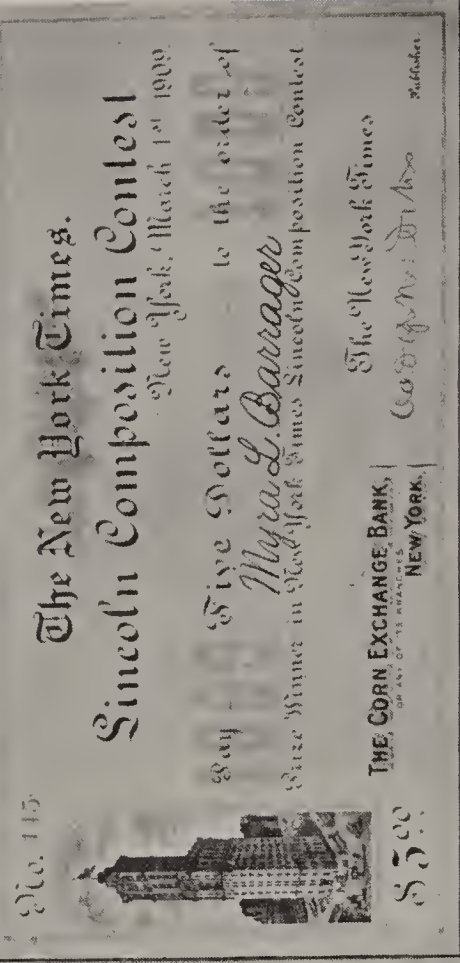 No. 115
The New York Times.
Lincoln Composition Contest
New York, March 1st 1909.
Pay Five Dollars to the order of
Myra L. Barrager
Prize Winner in New York Times Lincoln Composition Contest.
THE CORN EXCHANGE BANK,
OR ANY OF ITS BRANCHES
NEW YORK.
The New York Times
Publisher.
$5.00